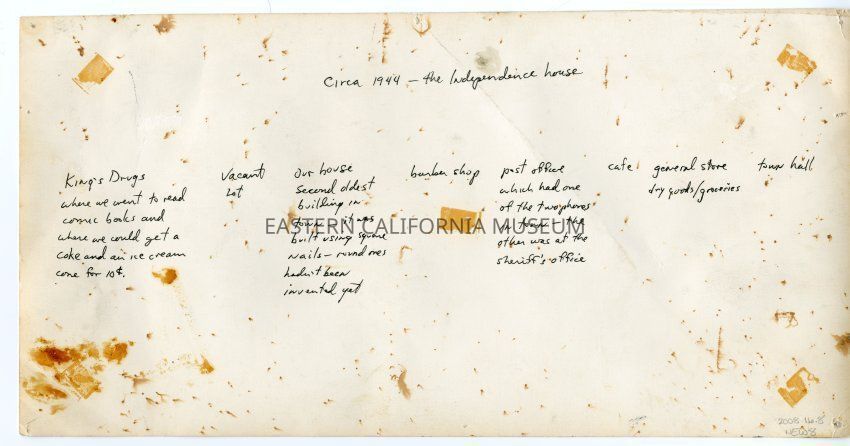 Circa 1944 — the Independence house
King's Drugs
where we went to read
comic books and
where we could get a
coke and an ice cream
cone for 10¢.
Vacant
Lot
Our house
Second oldest
building in
town - it was
built using square
nails — round ones
hadn't been
invented yet
barber shop
post office
which had one
of the two phones
in town - the
other was at the
sheriff's office
cafe
general store
dry goods/groceries
town hall
EASTERN CALIFORNIA MUSEUM
2008.16.8
NEW8